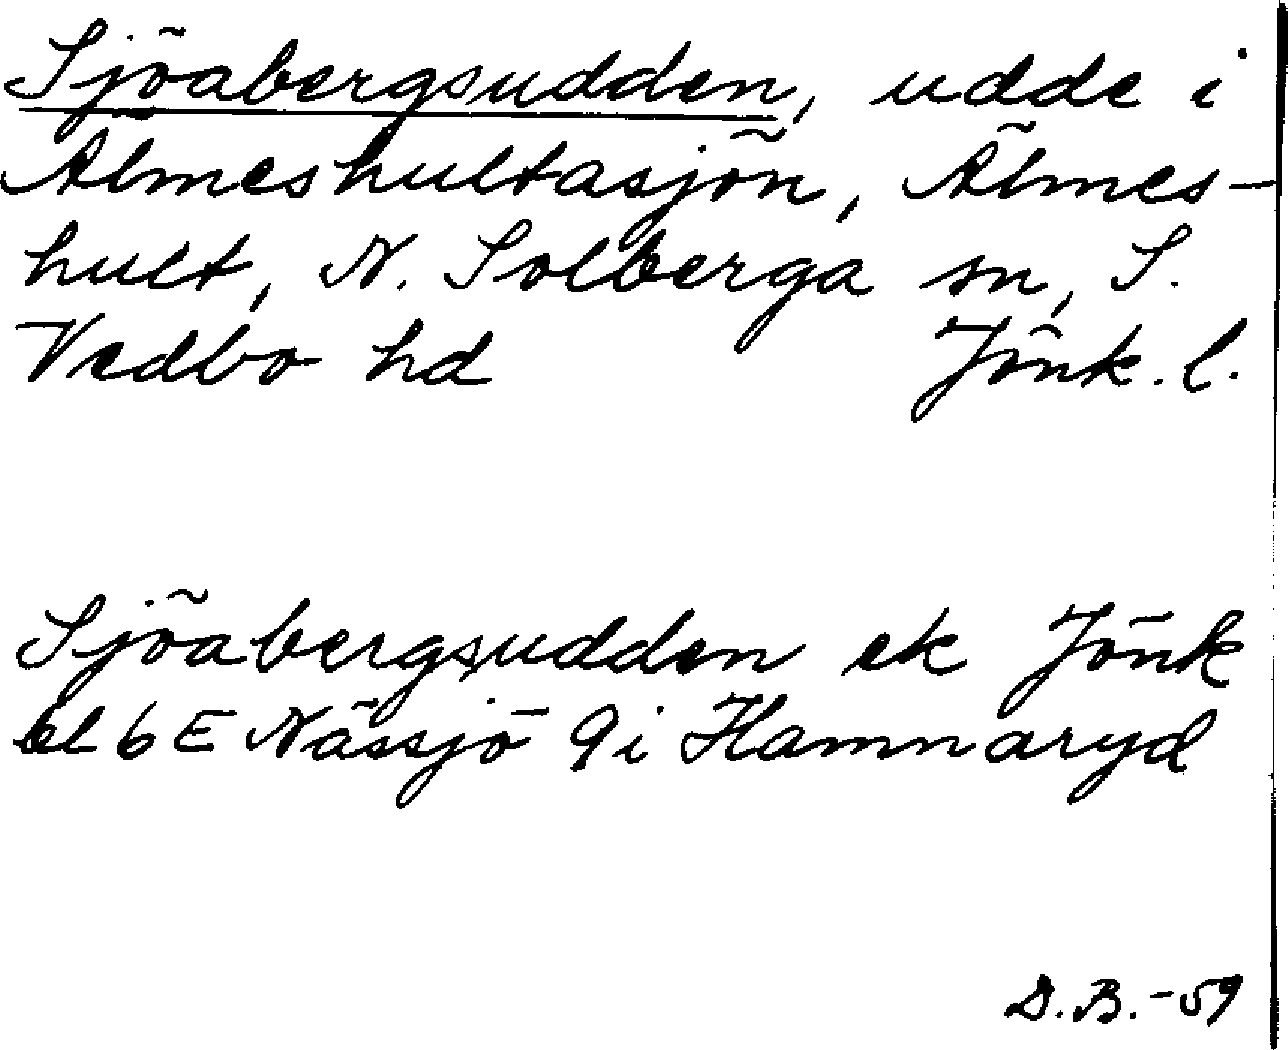 Sjöabergsudden, udde i
Älmeshultasjön, Älmes-
hult, N. Solberga sn, S.
Vedbo hd Jönk. l.
Sjöabergsudden ek Jönk
bl 6 E Nässjö 9i Hamnaryd
D.B.-59